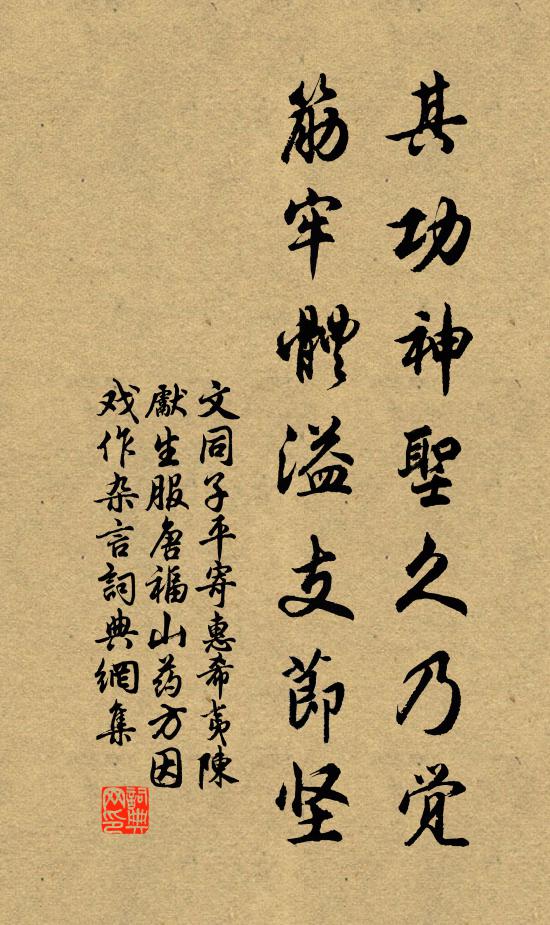 其功神聖久乃觉
筋牢體溢支節坚
文同子平寄惠希夷陳
獻生服唐福山药方因
戏作杂言詞典網集
詞典网印